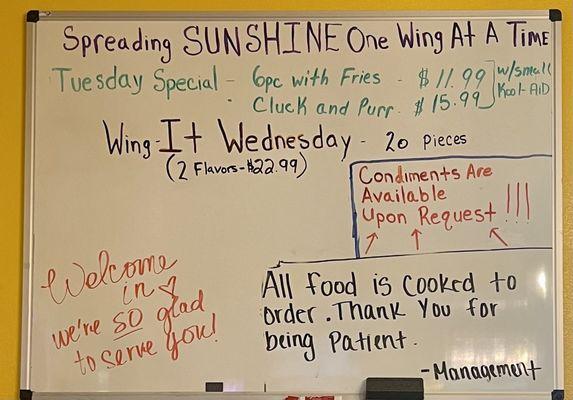 Spreading SUNSHINE One Wing At A Time
Tuesday Special - 6pc with Fries - $11.99 w/small
Cluck and Purr. $15.99 Kool-AID
Wing-It Wednesday - 20 Pieces
(2 Flavors-$22.99)
Condiments Are
Available
Upon Request !!!
Welcome
in
we're SO glad
to serve you!
All food is cooked to
order. Thank You for
being Patient.
-Management